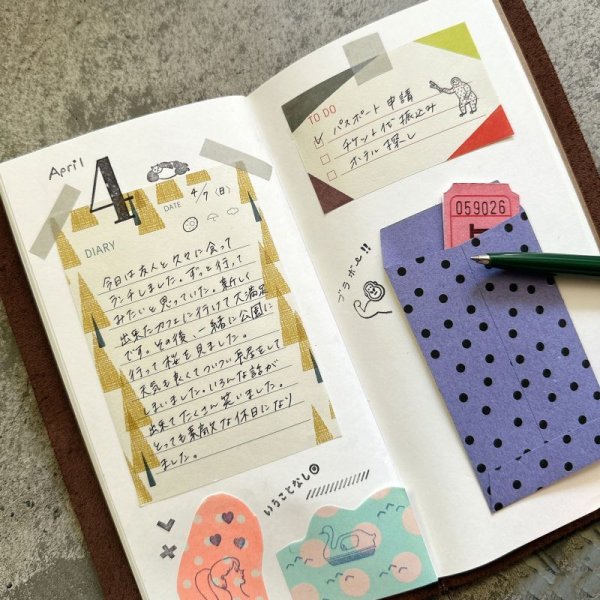 April
4
DATE 4/7 (日)
DIARY
今日は友人と久々に会って
ランチしました。ずっと行って
みたいと思っていた、新しく
出来たカフェに行けて大満足
です。その後、一緒に公園に
行って桜を見ました。
天気も良くてついつい長居をして
しまいました。いろんな話が
出来てたくさん笑いました。
とっても素敵な休日になり
ました。
いうことなし
TO DO
パスポート申請
チケット代振込み
ホテル探し
ブラボー!!
059026